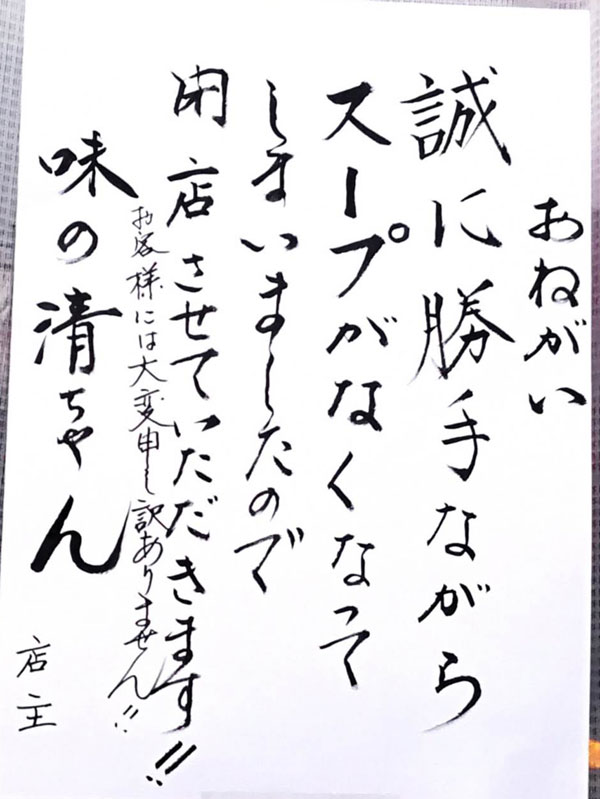 おねがい
誠に勝手ながら
スープがなくなって
しまいましたので
閉店させていただきます!!
お客様には大変申し訳ありません!!
味の清ちゃん
店主